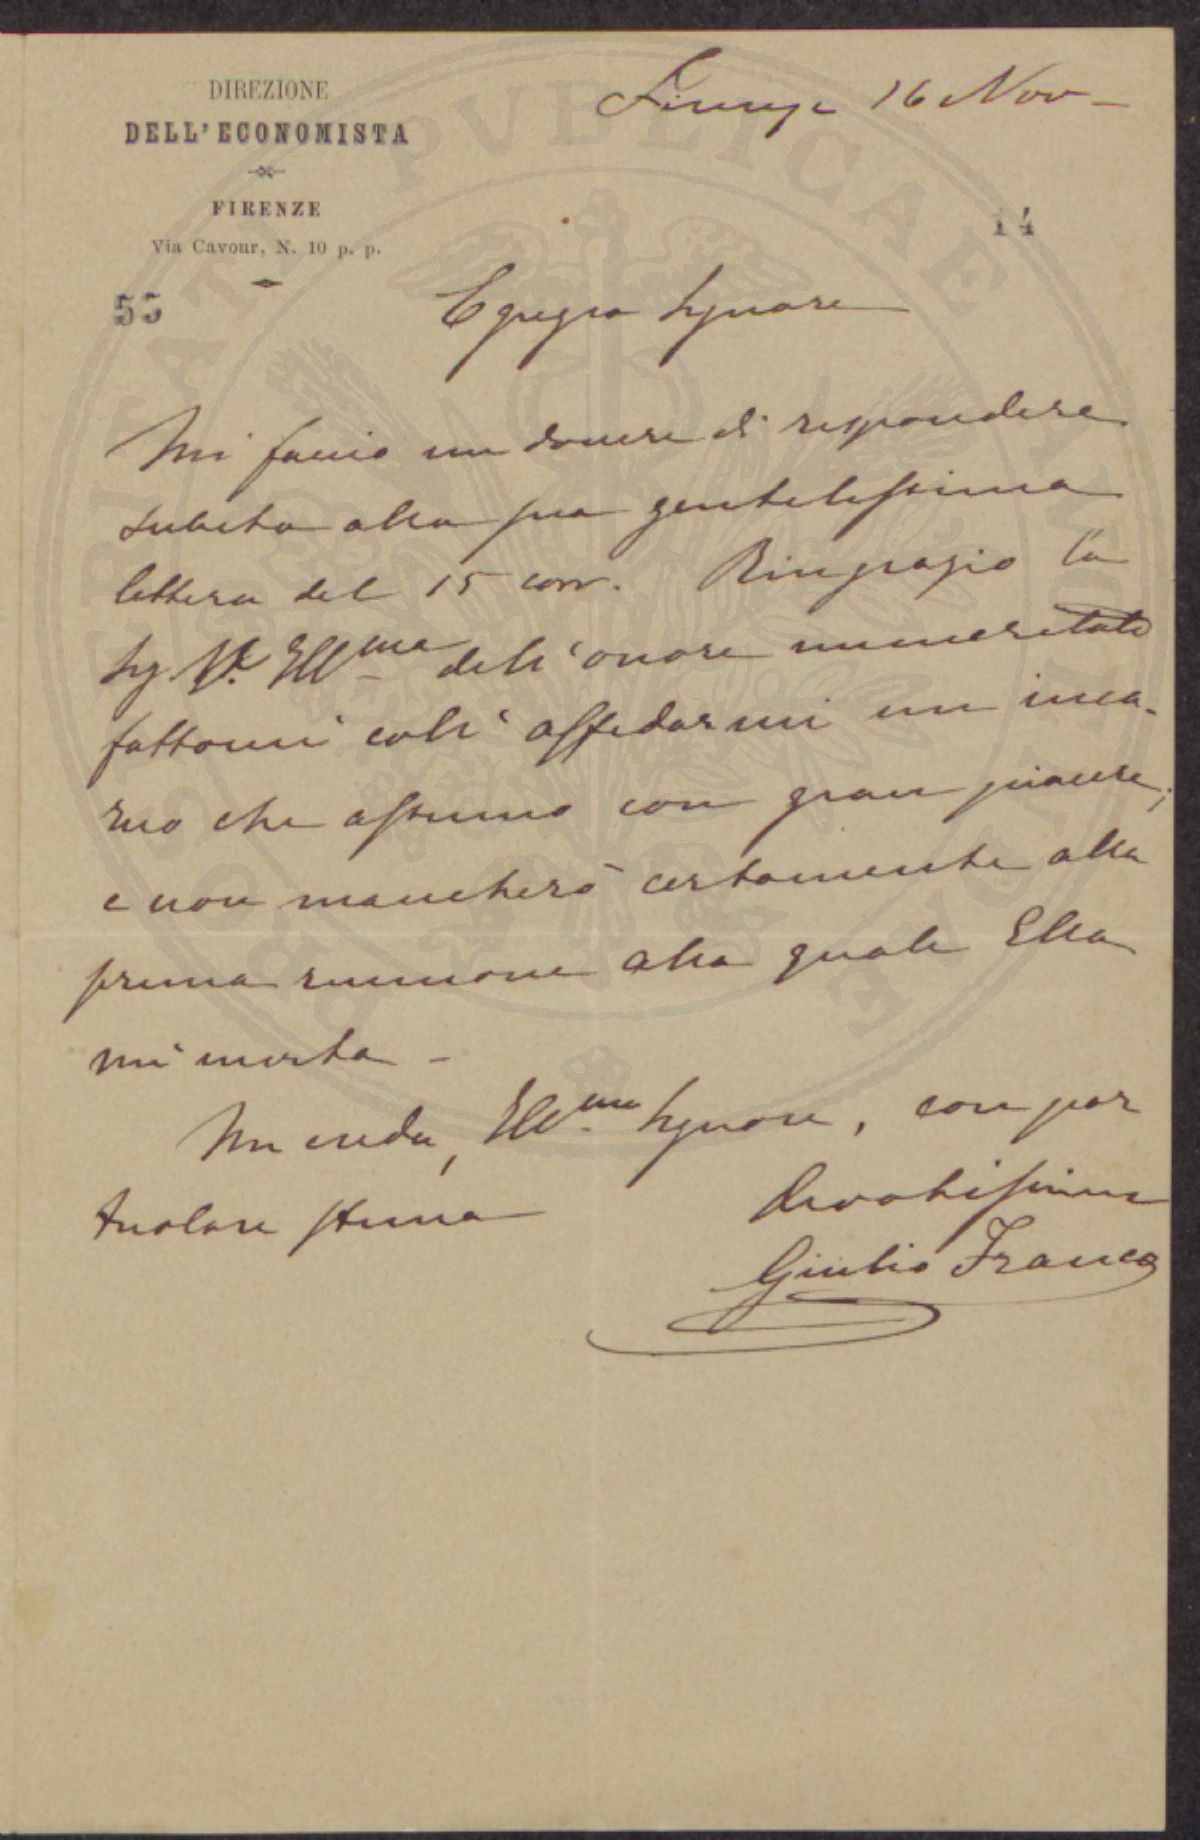 DIREZIONE
DELL'ECONOMISTA
FIRENZE
Via Cavour, N. 10 p. p.
Firenze 16 Nov -
14
53
Egregio Signore
Mi faccio un dovere di rispondere
subito alla sua gentilissima
lettera del 15 corr. Ringrazio la
Sig. Va. Illma dell'onore immeritato
fattomi coll'affidarmi un inca-
rico che assumo con gran piacere,
e non mancherò certamente alla
prima riunione alla quale Ella
mi invita -
Mi creda, Illmo Signore, con par
ticolare stima
Devotissimo
Giulio Franco